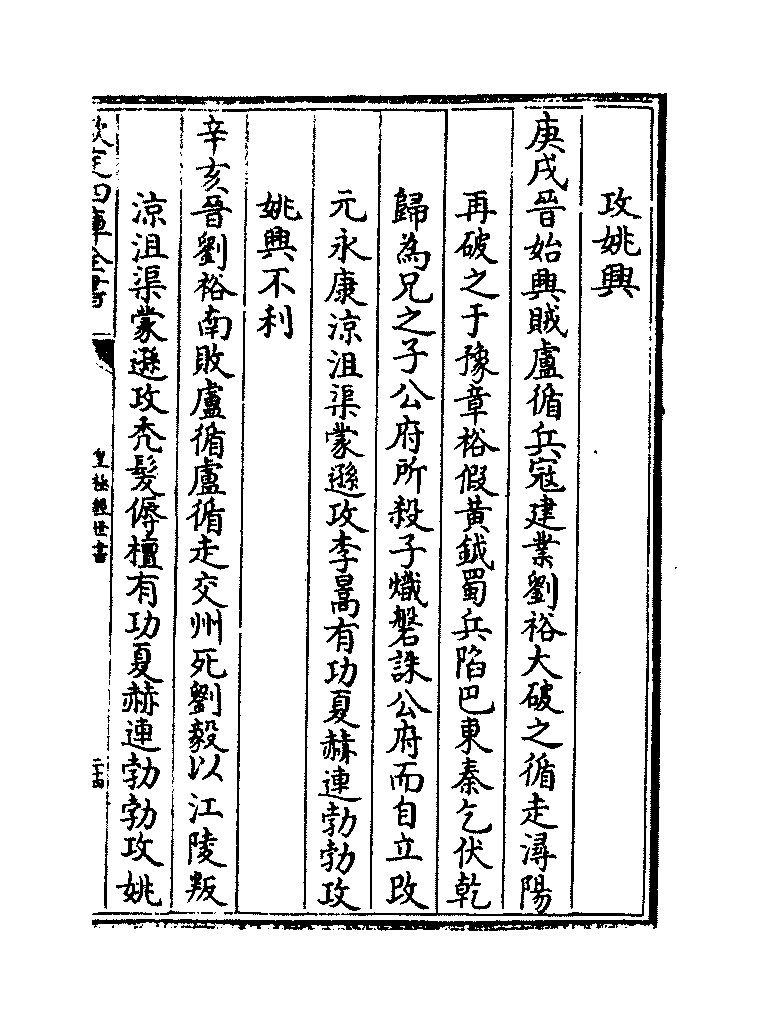 攻姚興
庚戌晉始興賊盧循兵寇建業劉裕大破之循走潯陽
再破之于豫章裕假黃鉞蜀兵陷巴東秦乞伏乾
歸為兄之子公府所殺子熾磐誅公府而自立改
元永康涼沮渠蒙遜攻李暠有功夏赫連勃勃攻
姚興不利
辛亥晉劉裕南敗盧循盧循走交州死劉毅以江陵叛
涼沮渠蒙遜攻禿髮傉檀有功夏赫連勃勃攻姚
欽定四庫全書
皇極經世書
二十四